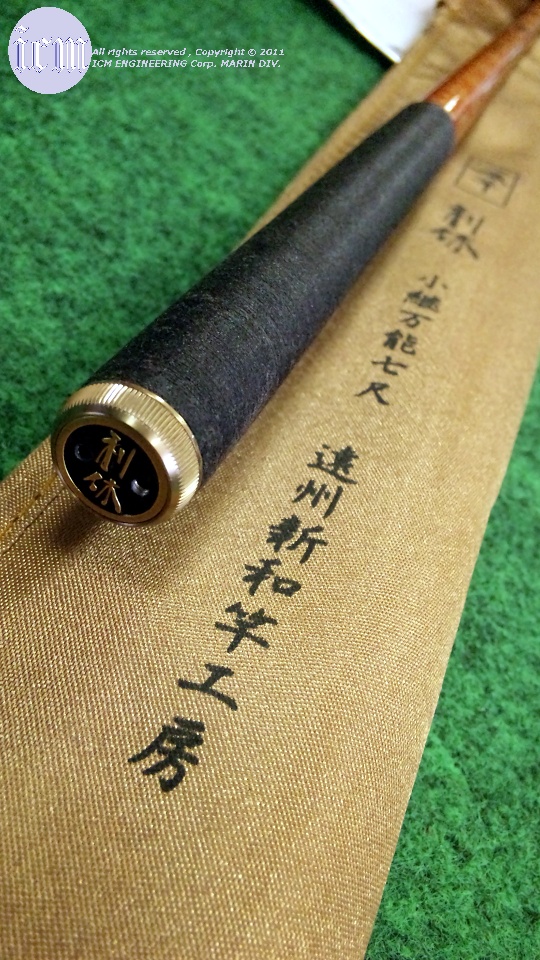 icm
All rights reserved , Copyright © 2011
ICM ENGINEERING Corp. MARIN DIV.
利休
小継万能七尺
遠州新和竿工房
利休